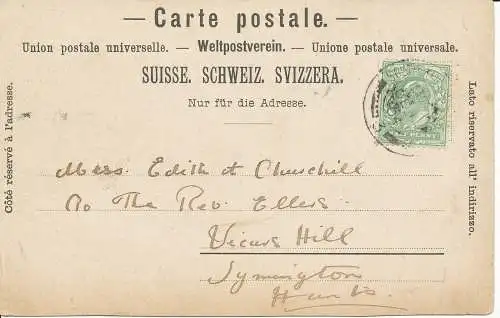 — Carte postale. —
Union postale universelle. — Weltpostverein. — Unione postale universale.
SUISSE. SCHWEIZ. SVIZZERA.
Nur für die Adresse.
Côté réservé à l'adresse.
Lato riservato all' indirizzo.
Edith Churchill
The Rev. Ellers.
Vicars Hill
Lymington
Hants